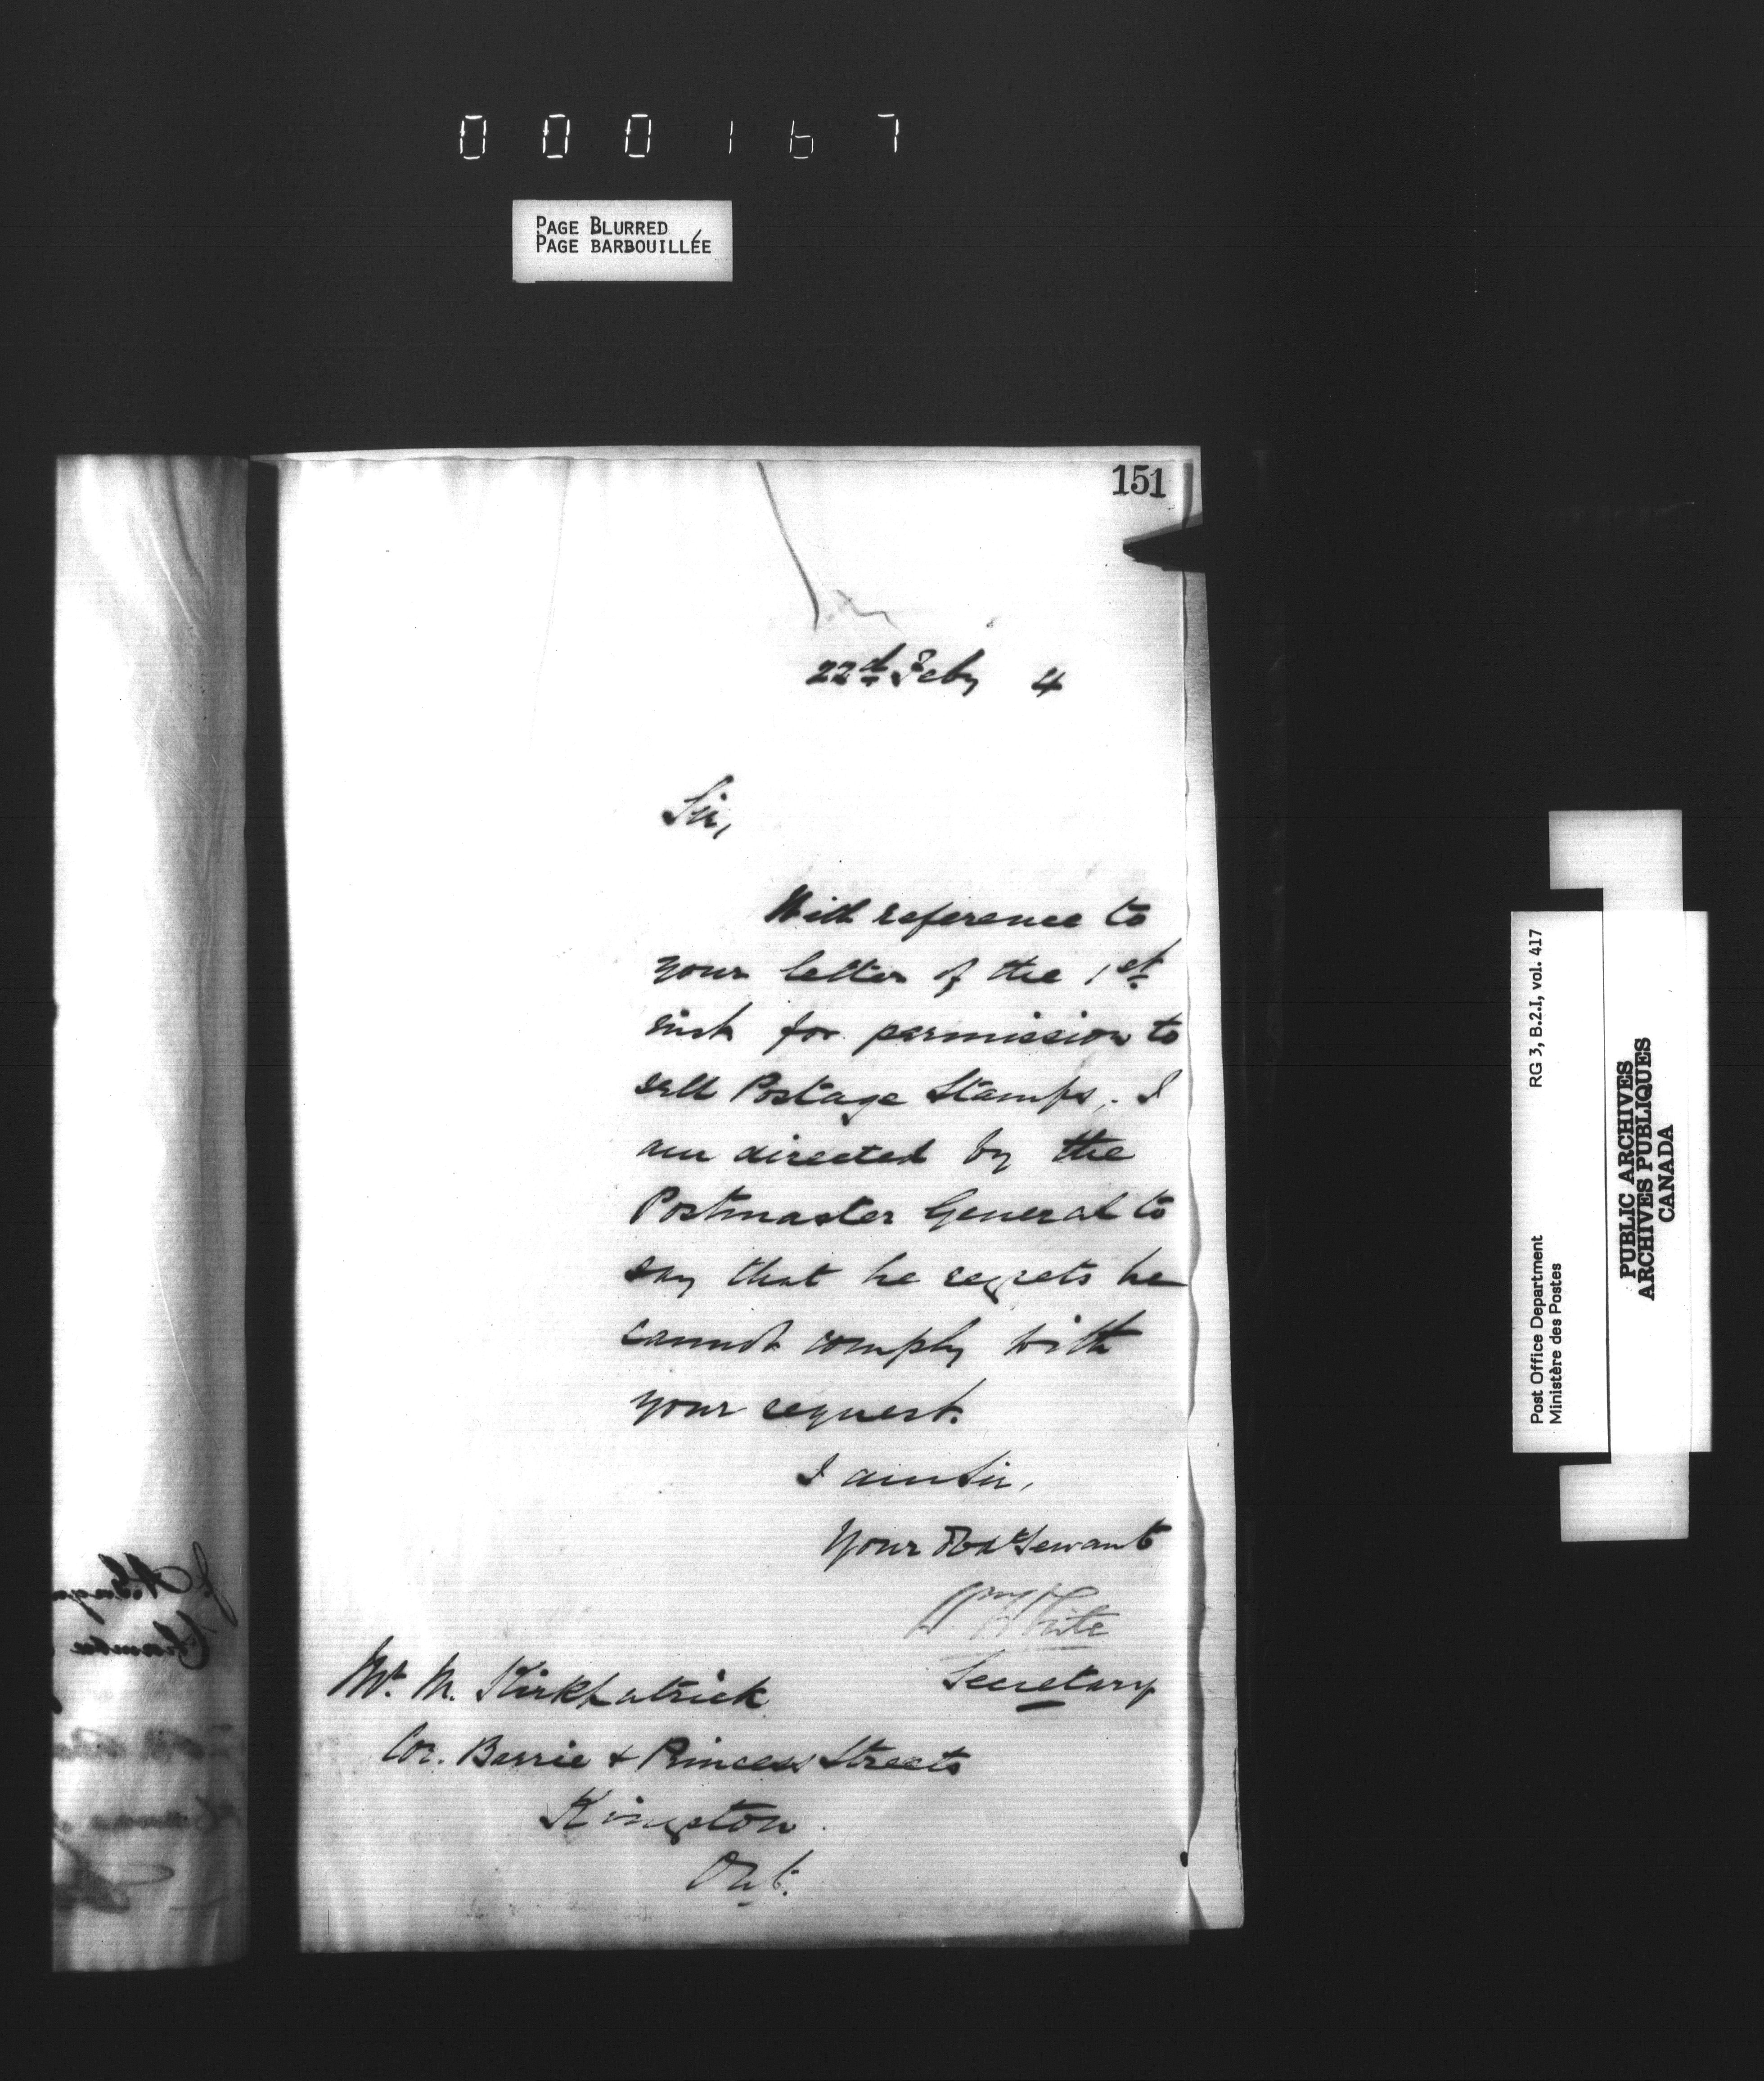 000167
PAGE BLURRED
PAGE BARBOUILLÉE
151
22d Feby 4
Sir,
With reference to
your letter of the 1st
inst for permission to
sell Postage Stamps, I
am directed by the
Postmaster General to
say that he regrets he
cannot comply with
your request.
I am Sir,
Your Obdt Servant
Wm White
Secretary
Mr. M. Kirkpatrick
Cor. Barrie & Princess Streets
Kingston
Ont.
Post Office Department RG 3, B.2.I, vol. 417
Ministère des Postes
PUBLIC ARCHIVES
ARCHIVES PUBLIQUES
CANADA